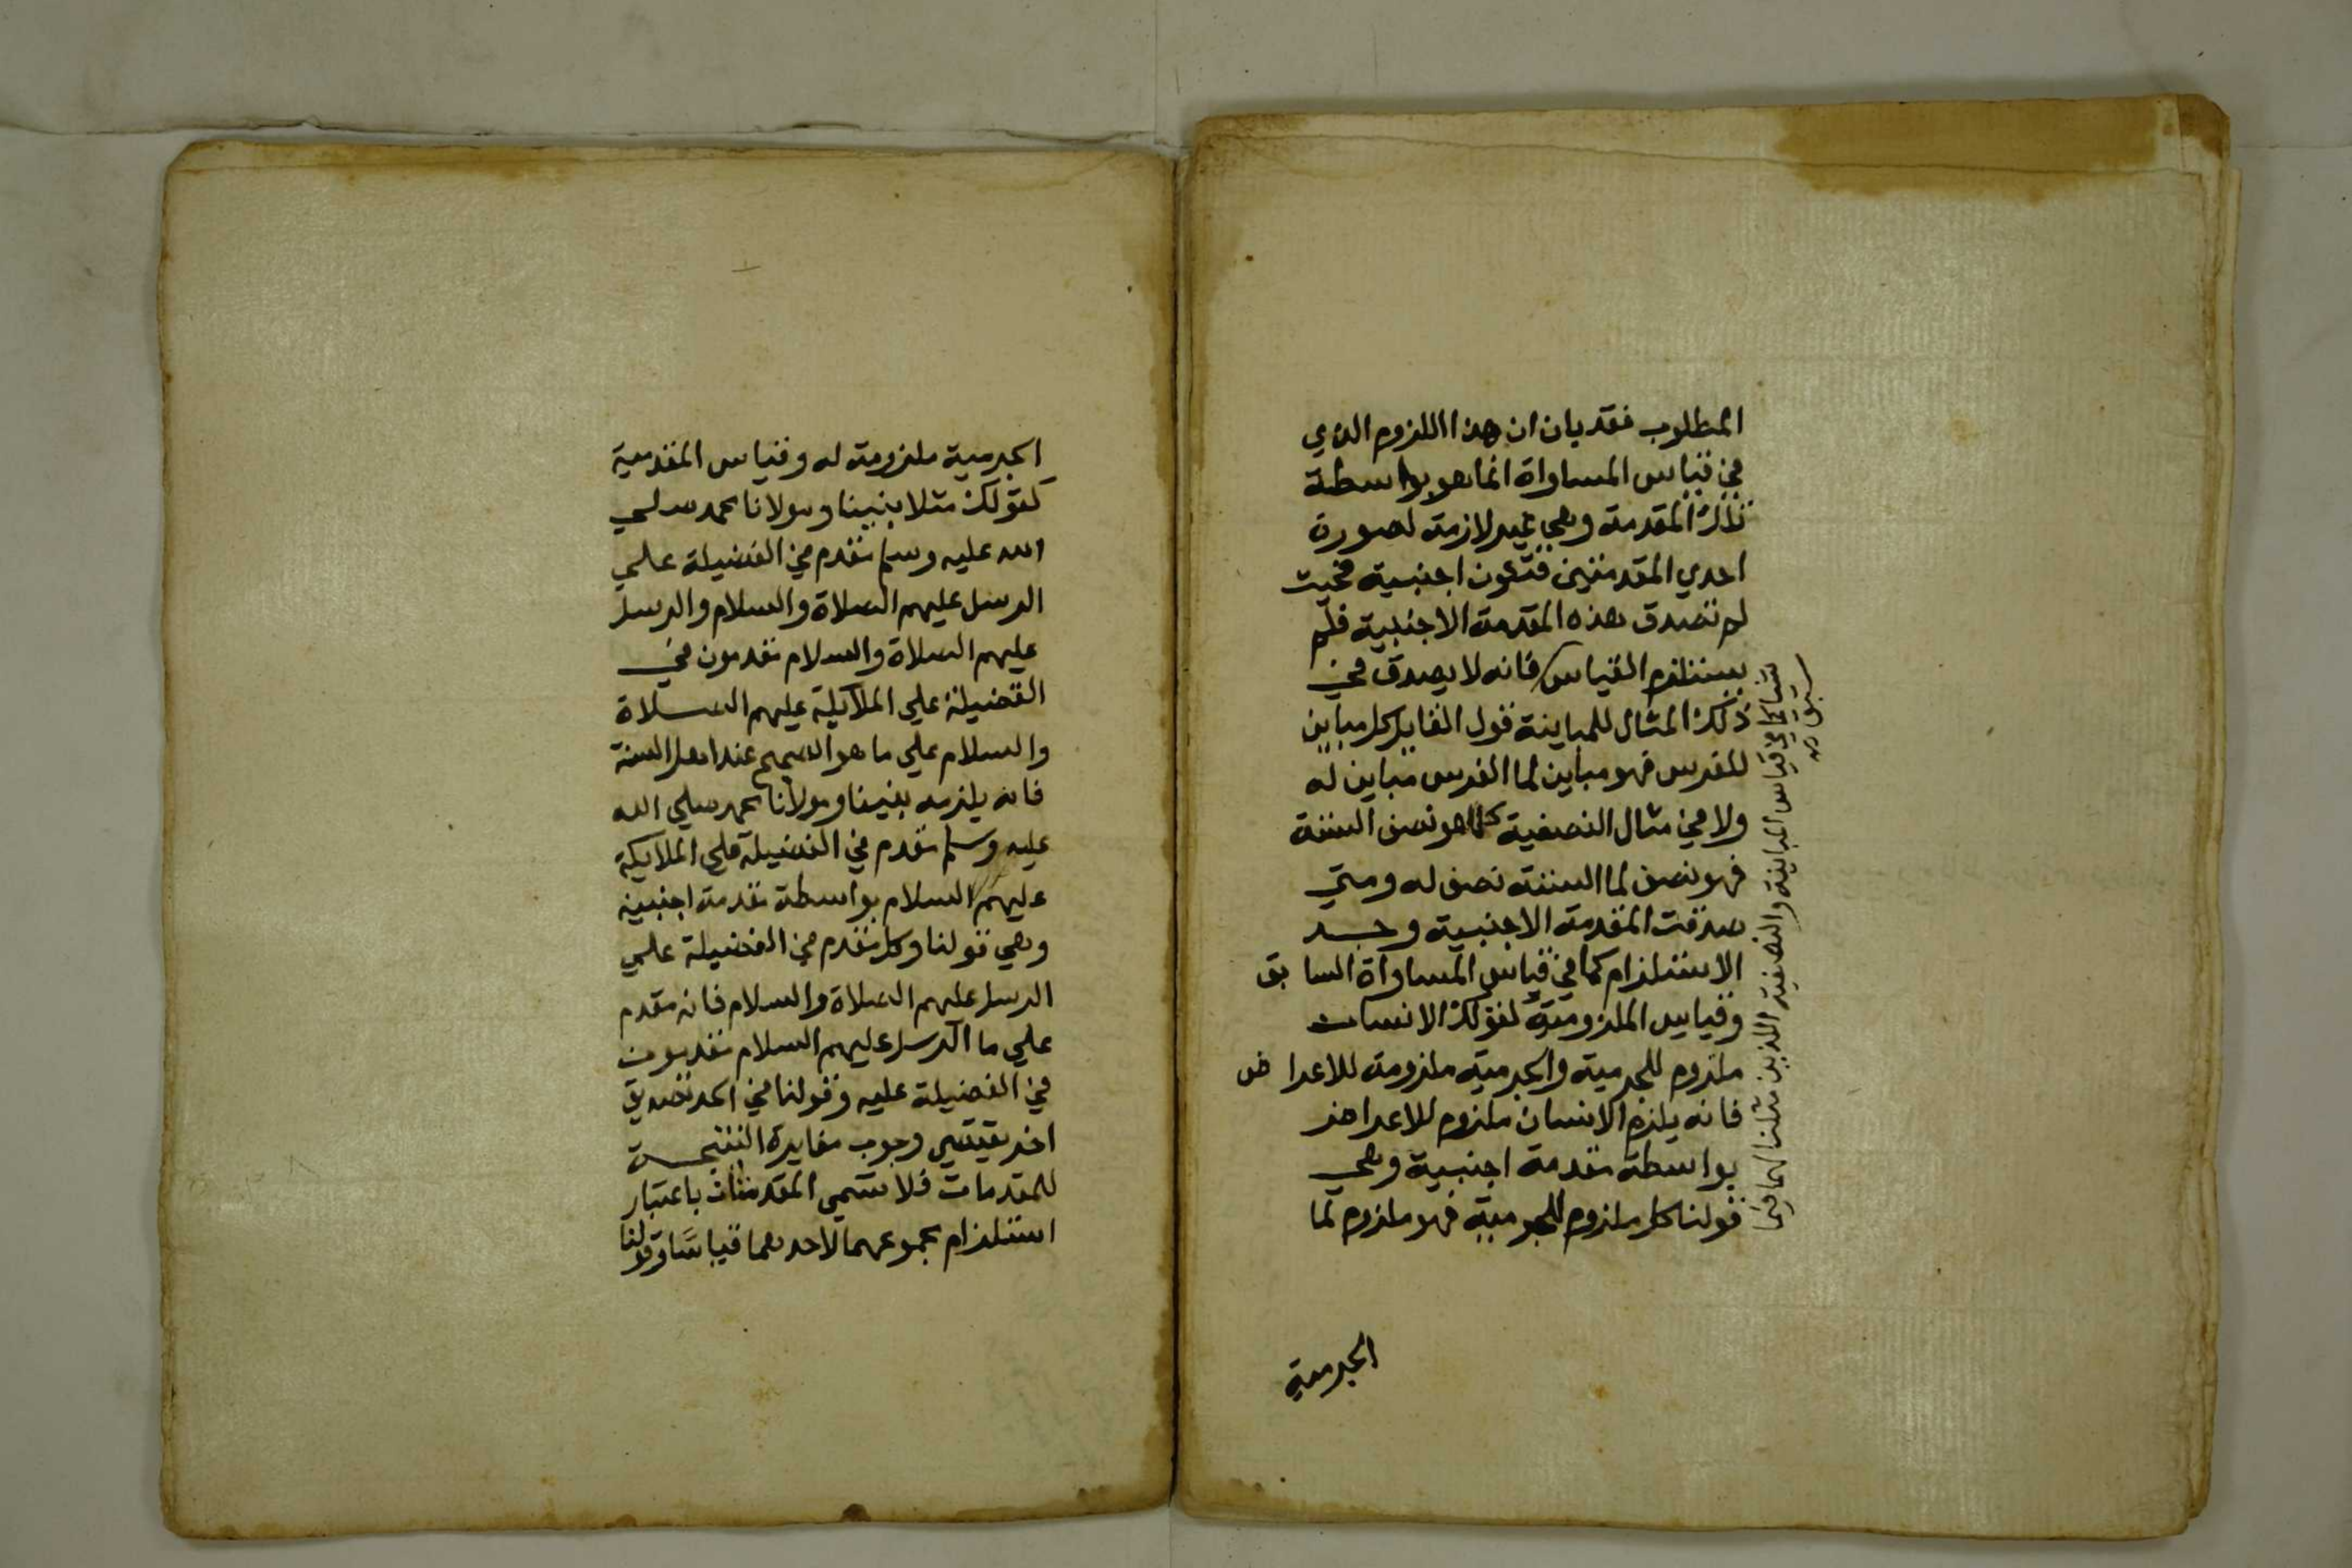 المطلوب فقد بان ان هذا اللزوم الذي
في قياس المساواة انما هو بواسطة
تلك المقدمة وهي غير لازمة لصورة
احدي المقدمتين فتكون اجنبية فحيث
لم تصدق هذه المقدمة الاجنبية فلم
يستلزم القياس فانه لا يصدق في
ذلك المثال للمباينة قول القايل كل مباين
للفرس فهو مباين لما الفرس مباين له
ولا في مثال النصفية كلما هو نصف الستة
فهو نصف لما الستة نصف له ومتي
صدقت المقدمة الاجنبية وجد
الاستلزام كما في قياس المساواة السابق
وقياس الملزومية لقولك الانسان
ملزوم للجرمية والجرمية ملزومة للاعراض
فانه يلزم الانسان ملزوم للاعراض
بواسطة مقدمة اجنبية وهي
قولنا كل ملزوم للجرمية فهو ملزوم لما
شيا كما في قياس المباينة والنصفية اللذين مثلنا بهما فيما
سبق صح
الجرمية
الجرمية ملزومة له وقياس المقدمية
كقولك مثلا نبينا ومولانا محمد صلي
الله عليه وسلم مقدم في الفضيلة علي
الرسل عليهم الصلاة والسلام والرسل
عليهم الصلاة والسلام مقدمون في
الفضيلة علي الملايكة عليهم الصلاة
والسلام علي ما هو الصحيح عند اهل السنة
فانه يلزمه نبينا ومولانا محمد صلي الله
عليه وسلم مقدم في الفضيلة علي الملايكة
عليهم السلام بواسطة مقدمة اجنبية
وهي قولنا وكل مقدم في الفضيلة علي
الرسل عليهم الصلاة والسلام فانه مقدم
علي ما الرسل عليهم السلام مقدمون
في الفضيلة عليه وقولنا في الحد تصديق
اخر يقتضي وجوب مغايرة النتيجة
للمقدمات فلا تسمي المقدمتان باعتبار
استلزام مجموعهما لاحدهما قياسا وقولنا